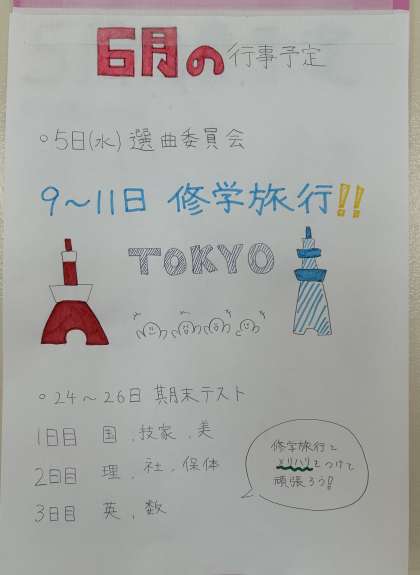 6月の行事予定
○5日(水) 選曲委員会
9～11日 修学旅行!!
TOKYO
○24～26日 期末テスト
1日目 国、技家、美
2日目 理、社、保体
3日目 英、数
修学旅行と
メリハリをつけて
頑張ろう!!